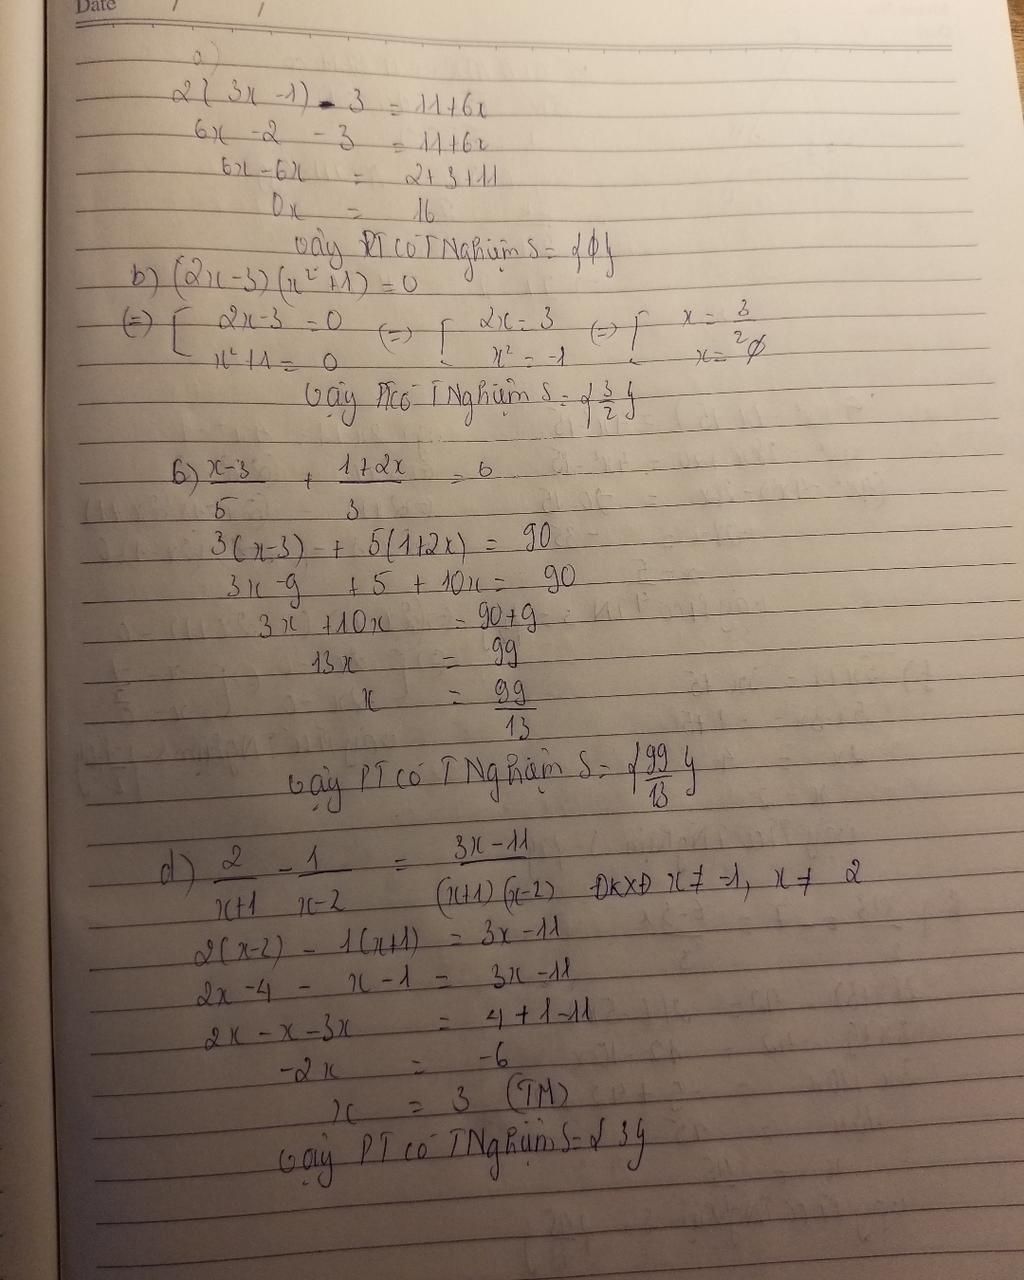 Date / /
a)
2(3x - 1) - 3 = 11+6x
6x - 2 - 3 = 11+6x
6x - 6x = 2+3+11
0x = 16
Vậy PT có TNghiệm S = {ϕ}
b) (2x-3)(x²+1) = 0
(=) [ 2x-3 = 0 (=) [ 2x = 3 (=) [ x = 3/2
x²+1 = 0 x² = -1 x = ϕ
Vậy PT có TNghiệm S = {3/2}
6) x-3/5 + 1+2x/3 = 6
3(x-3) + 5(1+2x) = 90
3x - 9 + 5 + 10x = 90
3x + 10x = 90+9
13x = 99
x = 99/13
Vậy PT có TNghiệm S = {99/13}
d) 2/x+1 - 1/x-2 = 3x-11/(x+1)(x-2) ĐKXĐ x ≠ -1, x ≠ 2
2(x-2) - 1(x+1) = 3x-11
2x-4 - x - 1 = 3x-11
2x - x - 3x = 4+1-11
-2x = -6
x = 3 (TM)
Vậy PT có TNghiệm S = {3}